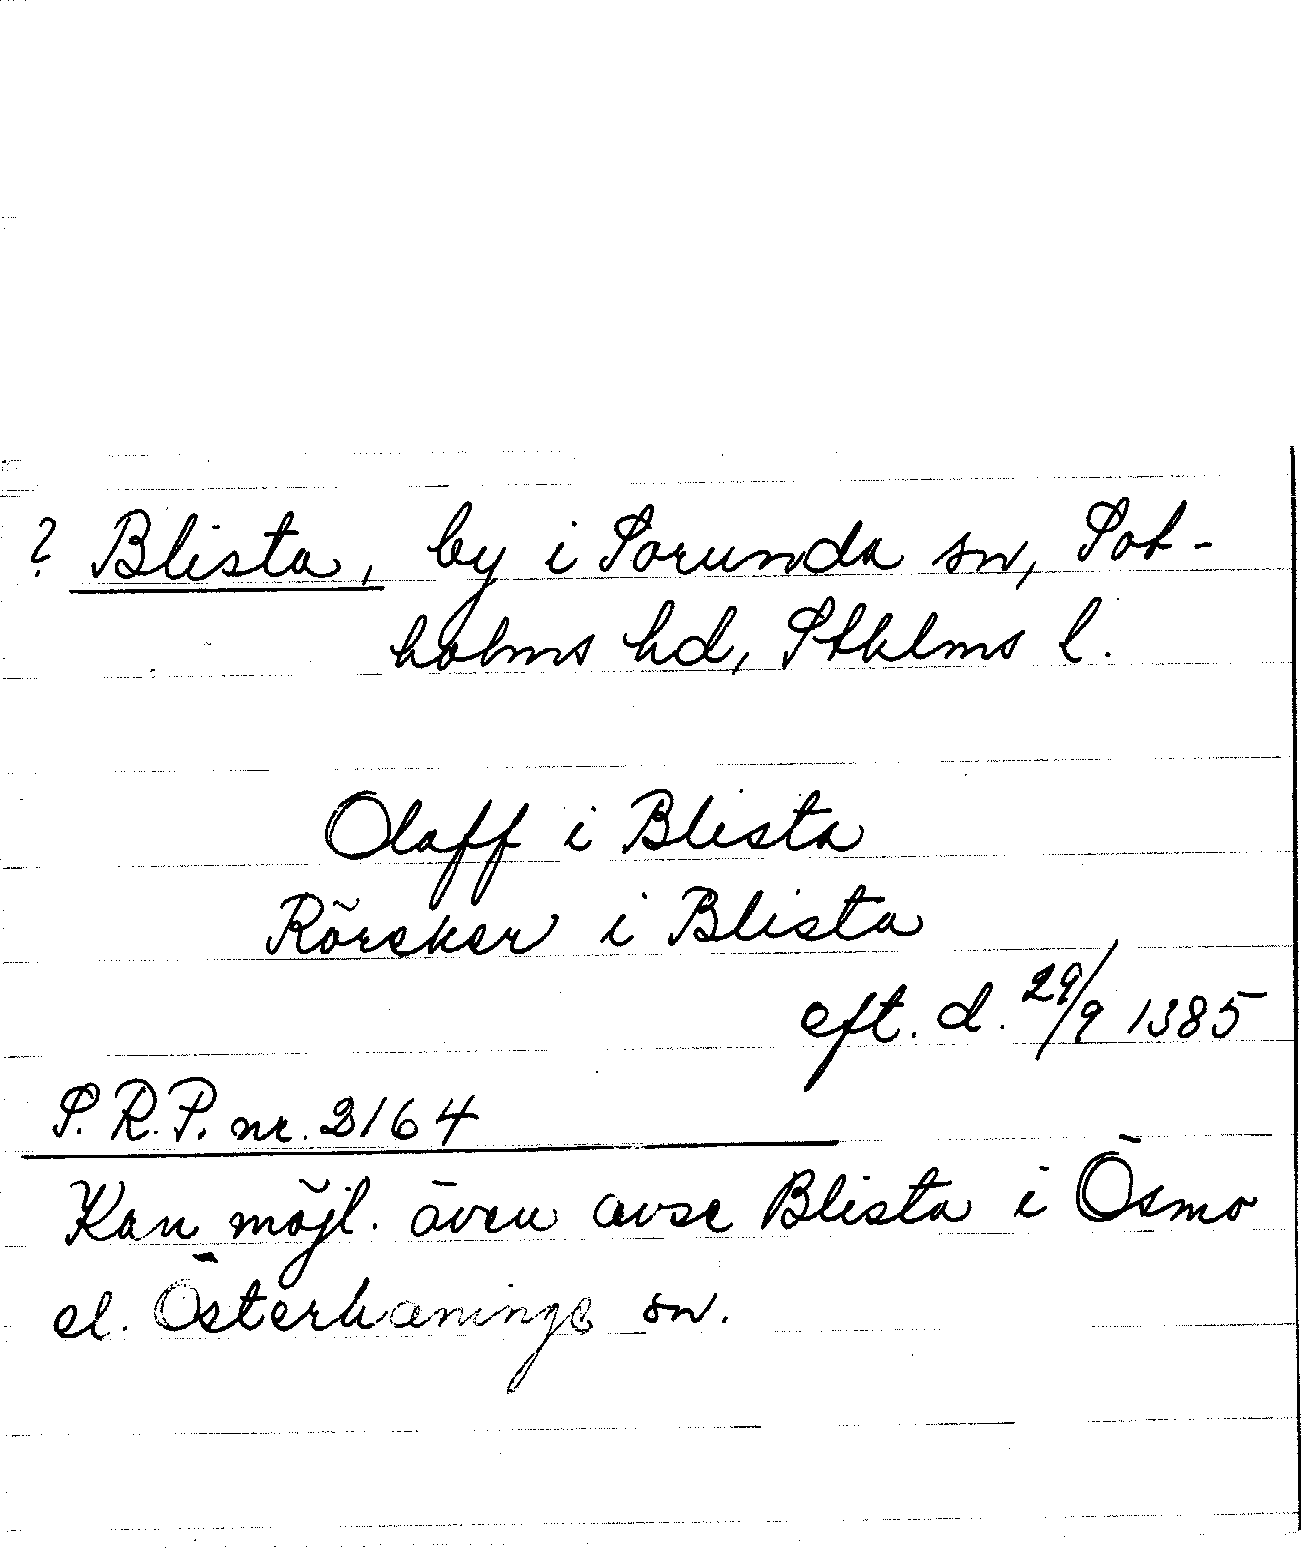 ? Blista, by i Sorunda sn, Sot-
holms hd, Sthlms l.
Olaff i Blista
Röreker i Blista
eft. d. 29/9 1385
S.R.P. nr. 2164
Kan möjl. även avse Blista i Ösmo
el. Österhanings sn.